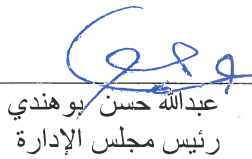 عبدالله حسن بوهندي
رئيس مجلس الإدارة